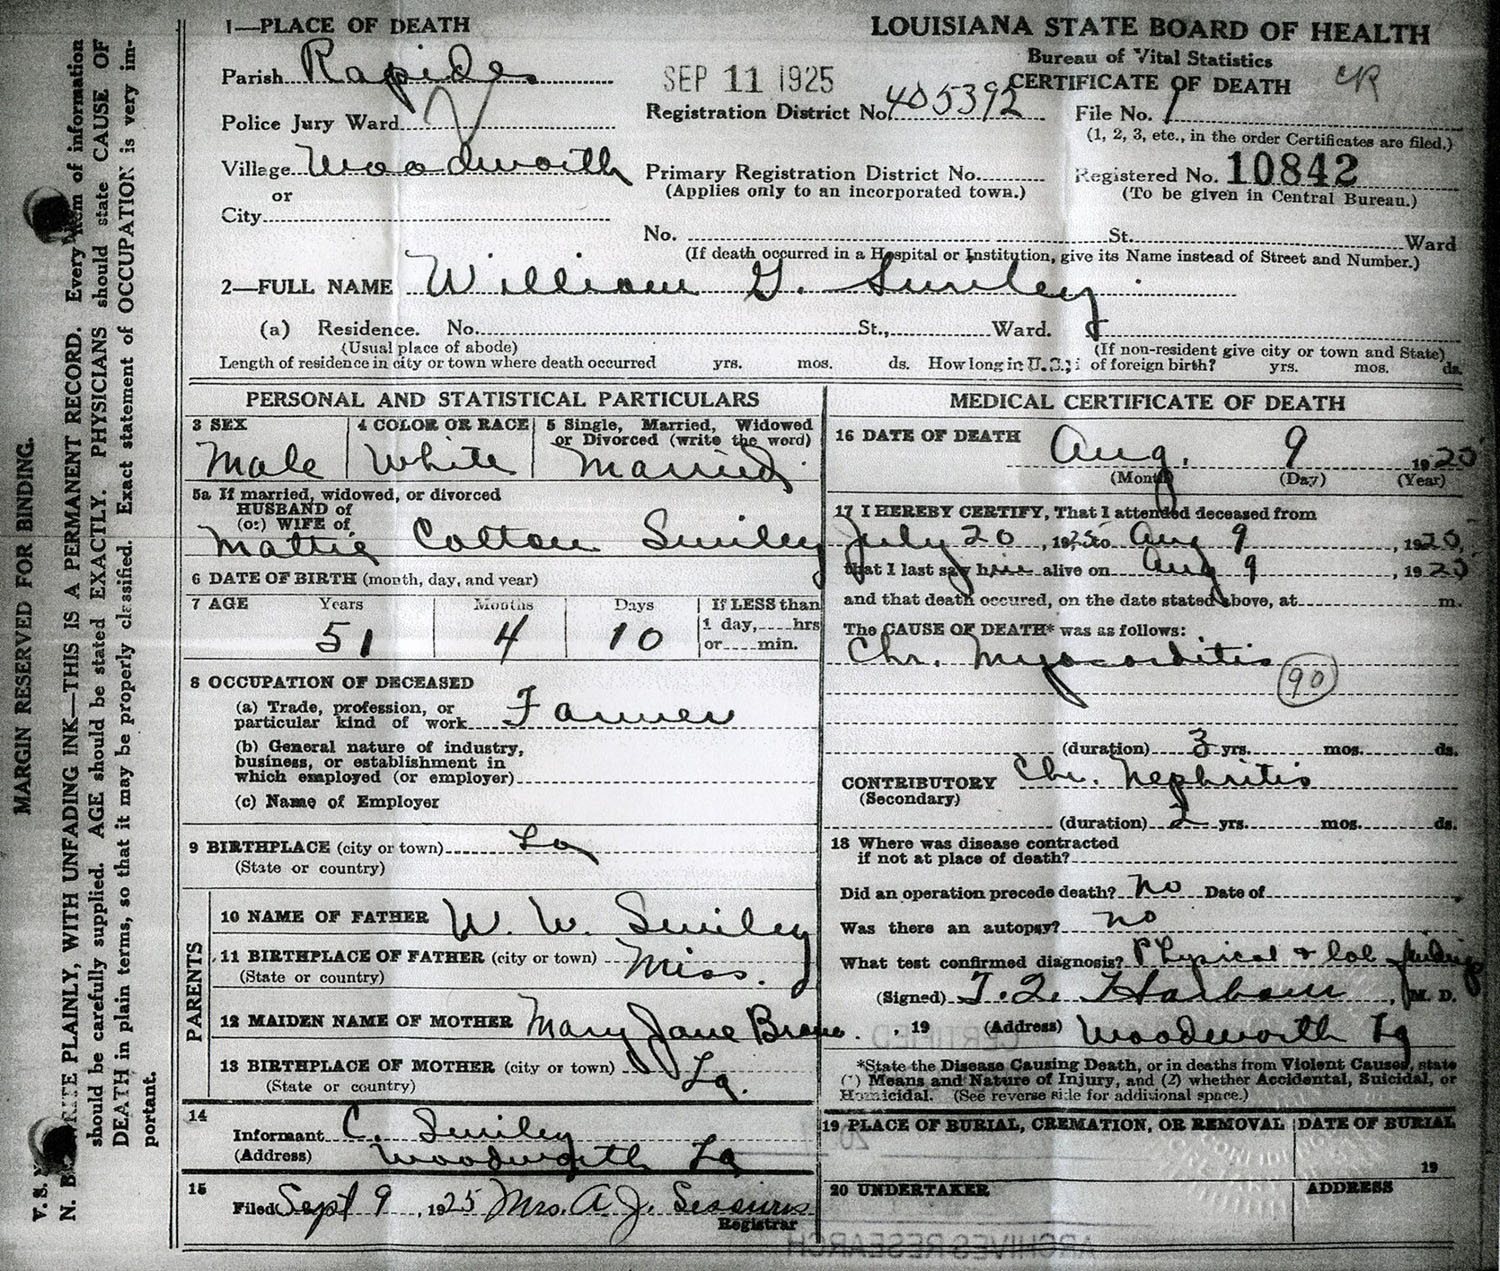 MARGIN RESERVED FOR BINDING.
N. B. WRITE PLAINLY, WITH UNFADING INK—THIS IS A PERMANENT RECORD. Every item of information
should be carefully supplied. AGE should be stated EXACTLY. PHYSICIANS should state CAUSE OF
DEATH in plain terms, so that it may be properly classified. Exact statement of OCCUPATION is very im-
portant.
V. S.
1—PLACE OF DEATH
Parish Rapides
Police Jury Ward
Village Woodworth
or
City
LOUISIANA STATE BOARD OF HEALTH
Bureau of Vital Statistics
SEP 11 1925
CERTIFICATE OF DEATH CR
Registration District No. 405392
File No. 1
(1, 2, 3, etc., in the order Certificates are filed.)
Primary Registration District No.
(Applies only to an incorporated town.)
Registered No. 10842
(To be given in Central Bureau.)
No. St. Ward
(If death occurred in a Hospital or Institution, give its Name instead of Street and Number.)
2—FULL NAME William G. Smiley
(a) Residence. No. St., Ward.
(Usual place of abode)
(If non-resident give city or town and State)
Length of residence in city or town where death occurred yrs. mos. ds. How long in U.S., if of foreign birth? yrs. mos. ds.
PERSONAL AND STATISTICAL PARTICULARS
3 SEX
Male
4 COLOR OR RACE
White
5 Single, Married, Widowed
or Divorced (write the word)
Married
5a If married, widowed, or divorced
HUSBAND of
(or) WIFE of
Mattie Colton Smiley
6 DATE OF BIRTH (month, day, and year)
7 AGE Years Months Days If LESS than
51 4 10 1 day, hrs
or min.
8 OCCUPATION OF DECEASED
(a) Trade, profession, or
particular kind of work Farmer
(b) General nature of industry,
business, or establishment in
which employed (or employer)
(c) Name of Employer
9 BIRTHPLACE (city or town) La
(State or country)
PARENTS
10 NAME OF FATHER W. W. Smiley
11 BIRTHPLACE OF FATHER (city or town) Miss.
(State or country)
12 MAIDEN NAME OF MOTHER Mary Jane
13 BIRTHPLACE OF MOTHER (city or town) La.
(State or country)
14
Informant C. Smiley
(Address) Woodworth La
15
Filed Sept 9, 1925 Mrs. A. J. Sessums
Registrar
MEDICAL CERTIFICATE OF DEATH
16 DATE OF DEATH Aug. 9 1925
(Month) (Day) (Year)
17 I HEREBY CERTIFY, That I attended deceased from
July 20, 1925 to Aug 9, 1925,
that I last saw him alive on Aug 9, 1925
and that death occured, on the date stated above, at m.
The CAUSE OF DEATH* was as follows:
Chr. Myocarditis
90
(duration) 3 yrs. mos. ds.
CONTRIBUTORY Chr. Nephritis
(Secondary)
(duration) 2 yrs. mos. ds.
18 Where was disease contracted
if not at place of death?
Did an operation precede death? no Date of
Was there an autopsy? no
What test confirmed diagnosis? Physical & lab findings
(Signed) M. D.
, 19 (Address) Woodworth La
*State the Disease Causing Death, or in deaths from Violent Causes, state
(1) Means and Nature of Injury, and (2) whether Accidental, Suicidal, or
Homicidal. (See reverse side for additional space.)
19 PLACE OF BURIAL, CREMATION, OR REMOVAL
DATE OF BURIAL
19
20 UNDERTAKER
ADDRESS
CERTIFIED
ARCHIVES RESEARCH